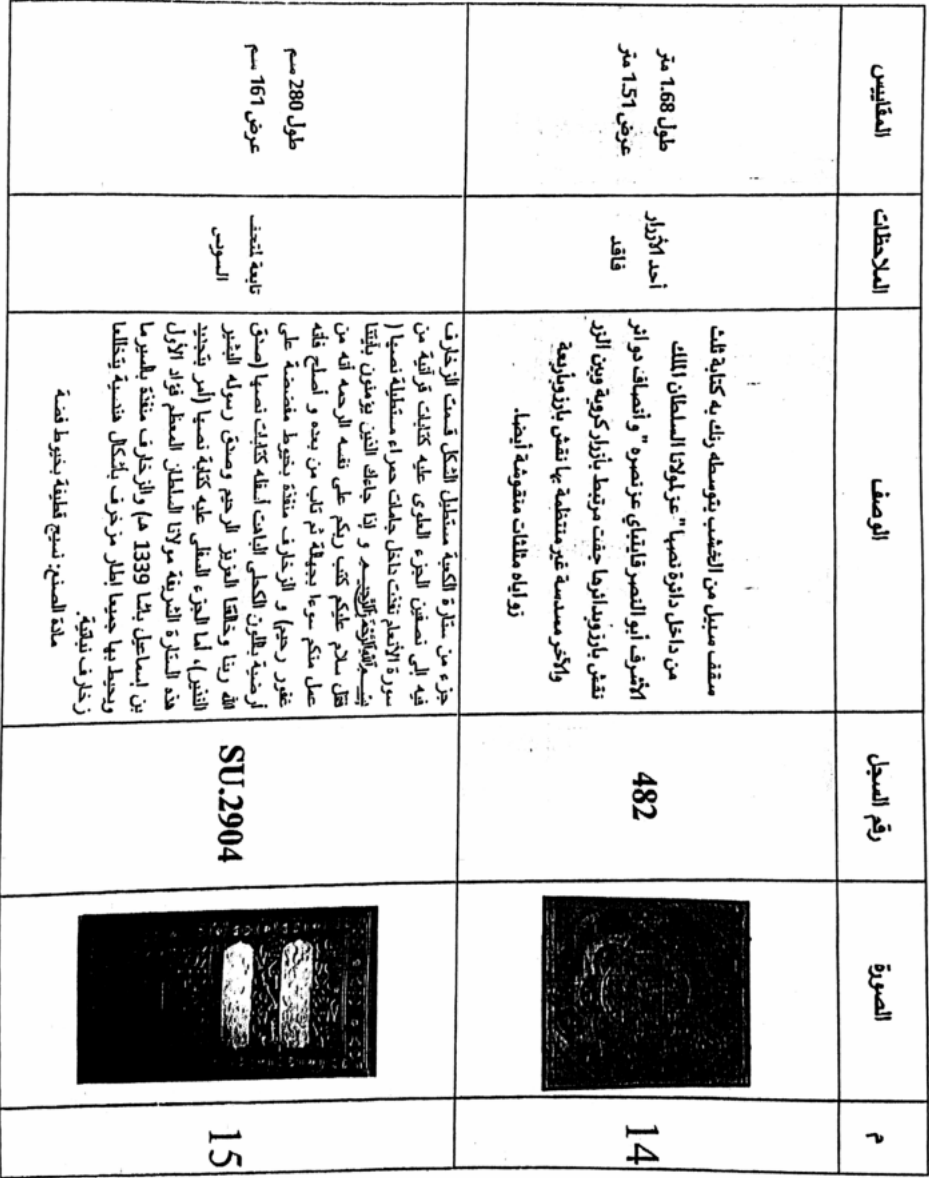 م
الصورة
رقم السجل
الوصف
الملاحظات
المقاييس
14
482
سقف سبيل من الخشب يتوسطه رنك به كتابة ثلث
من داخل دائرة نصها "عز لمولانا السلطان الملك
الأشرف أبو النصر قايتباي عز نصره" وأنصاف دوائر
نقش بارز وبدائرها جفت مرتبط بأزرار كروية وبين الزر
والآخر مسدسة غير منتظمة بها نقش بارز وبأربعة
زواياه مثلثات منقوشة أيضا.
أحد الأزرار
فاقد
طول 1.68 متر
عرض 1.51 متر
15
SU.2904
جزء من ستارة الكعبة مستطيل الشكل قسمت الزخارف
فيه الى نصفين الجزء العلوى عليه كتابات قرآنية من
سورة الأنعام نفذت داخل جامات حمراء مستطيلة نصها (
بسم الله الرحمن الرحيم و إذا جاءك الذين يؤمنون بآيتنا
فقل سلام عليكم كتب ربكم على نفسه الرحمه أنه من
عمل منكم سوءا بجهالة ثم تاب من بعده و أصلح فأنه
غفور رحيم) و الزخارف منفذة بخيوط مفضضة على
أرضية باللون الكحلى الباهت أسفله كتابات نصها (صدق
الله ربنا وخالقنا العزيز الرحيم وصدق رسوله البشير
النذير)، أما الجزء السفلى عليه كتابة نصها (أمر بتجديد
هذه الستارة الشريفة مولانا السلطان المعظم فؤاد الأول
بن إسماعيل باشا 1339 هـ) والزخارف منفذة بالسيرما
ويحيط بها جميعا إطار مزخرف بأشكال هندسية يتخللها
زخارف نباتية.
مادة الصنع: نسيج قطيفة بخيوط فضة
تابعة لمتحف
السويس
طول 280 سم
عرض 161 سم